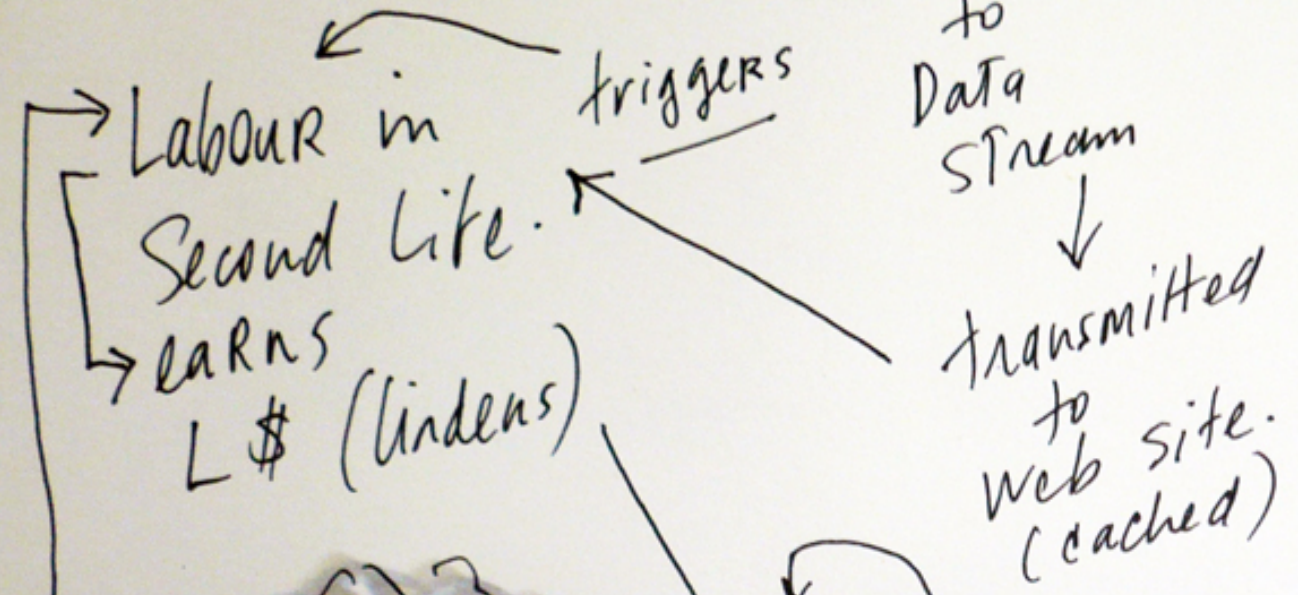 Labour in
Second Life.
earns
L $ (lindens)
triggers
to
Data
stream
transmitted
to
web site.
(cached)